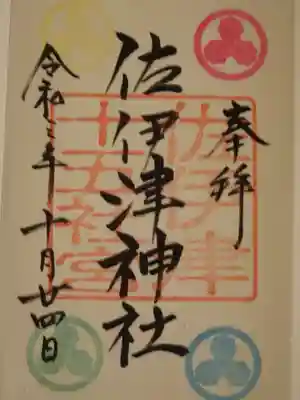 奉拝
佐伊津神社
令和三年十月廿四日
佐伊津
十五社宮